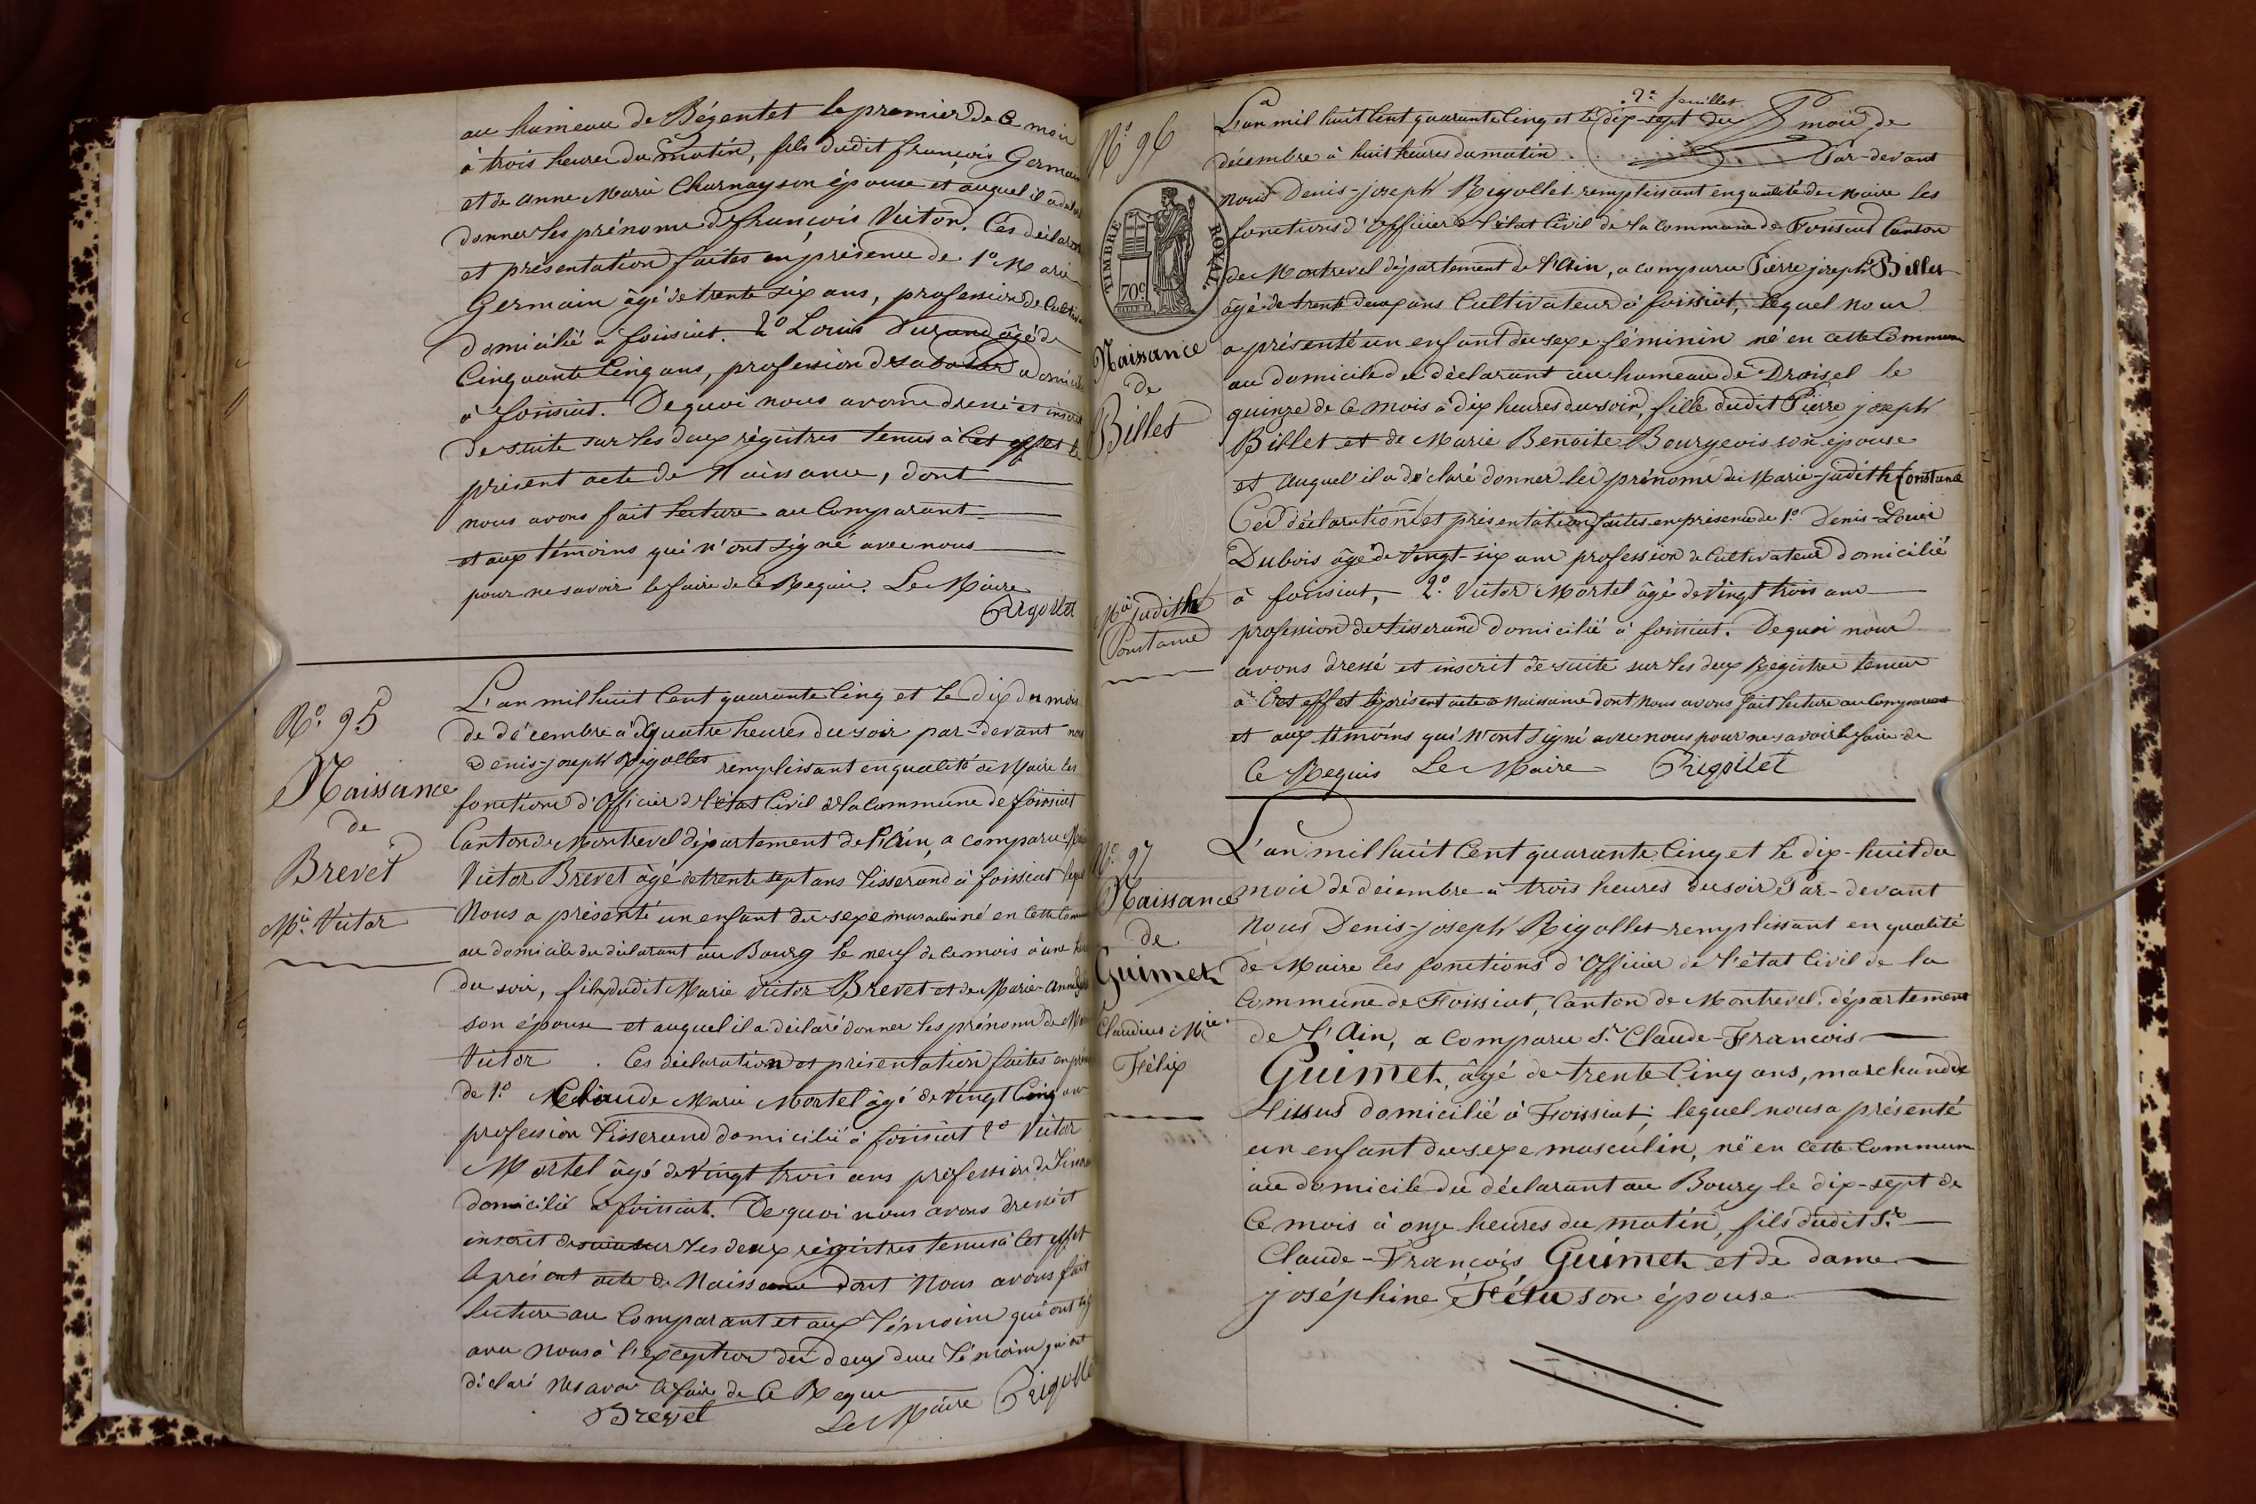 au hameau de Bégentet le premier de ce mois
à trois heures du matin, fils dudit françois Germain
et de anne Marie Charnay son épouse et auquel il a
donner les prénoms de françois Victor. Ces
et présentation faites en présence de 1º Marie
Germain âgé de trente six ans, profession de
domicilié à foissiat. 2º Louis Durand âgé de
Cinquante Cinq ans, profession de
à foissiat. De quoi nous avons dressé et inscrit
de suite sur les deux régistres tenus à Cet effet le
présent acte de Naissance, dont
nous avons fait lecture au Comparant
et aux témoins qui n'ont signé avec nous
pour ne savoir le faire de ce Requis. Le Maire
Rigollet
Nº. 95
Naissance
de
Brevet
Mie. Victor
L'an mil huit Cent quarante Cinq et le dix du mois
de décembre à quatre heures du soir par-devant nous
Denis-joseph Rigollet remplissant en qualité de Maire les
fonctions d'Officier de l'état Civil de la Commune de foissiat
Canton de Montrevel département de l'Ain, a comparu
Victor Brevet âgé de trente sept ans Tisserand à foissiat
Nous a présenté un enfant du sexe masculin né en Cette
au domicile du déclarant au Bourg le neuf de ce mois à une
du soir, fils dudit Marie Victor Brevet et de Marie-
son épouse et auquel il a déclaré donner les prénoms de
Victor . Ces déclaration et présentation faites en
de 1º. Claude Marie Mortel âgé de vingt Cinq ans
profession Tisserand domicilié à foissiat 2º Victor
Mortel âgé de vingt trois ans profession de
domicilié à foissiat. De quoi nous avons dressé et
inscrit de suite sur les deux régistres tenus à Cet effet
le présent acte de Naissance dont Nous avons fait
lecture au Comparant et aux Témoins qui ont
avec nous à l'exception des deux Témoins qui ont
déclaré ne savoir le faire de Ce Requis
Brevet Le Maire Rigollet
2e. feuillet
Nº. 96
L'an mil huit Cent quarante Cinq et le dix-sept du mois de
décembre à huit heures du matin. Par-devant
nous Denis-joseph Rigollet remplissant en qualité de Maire les
fonctions d'Officier de l'état Civil de la Commune de Foissiat Canton
de Montrevel département de l'Ain, a comparu Pierre joseph Billet
âgé de trente deux ans Cultivateur à foissiat, lequel nous
a présenté un enfant du sexe féminin né en cette Commune
au domicile du déclarant au hameau de Draisel le
quinze de ce mois à dix heures du soir, fille dudit Pierre joseph
Billet et de Marie Benoite Bourgeois son épouse
et auquel il a déclaré donner les prénoms de Marie-judith Constance
Ces déclaration et présentation faites en présence de 1º. Denis-Louis
Dubois âgé de vingt-six ans profession de Cultivateur domicilié
à foissiat, 2º. Victor Mortel âgé de vingt trois ans
profession de tisserand domicilié à foissiat. De quoi nous
avons dressé et inscrit de suite sur les deux Régistres tenus
à Cet effet le présent acte de Naissance dont nous avons fait lecture au Comparant
et aux témoins qui n'ont signé avec nous pour ne savoir le faire de
Ce Requis Le Maire Rigollet
TIMBRE ROYAL
70c
Naissance
de
Billet
Mie judith
Constance
Nº. 97
Naissance
de
Guimet
Claudius Mie.
Félix
L'an mil huit Cent quarante Cinq et le dix-huit du
mois de décembre à trois heures du soir Par-devant
Nous Denis-joseph Rigollet remplissant en qualité
de Maire les fonctions d'Officier de l'état Civil de la
Commune de Foissiat, Canton de Montrevel, département
de l'Ain, a comparu Sr. Claude-François
Guimet, âgé de trente Cinq ans, marchand de
tissus domicilié à Foissiat; lequel nous a présenté
un enfant du sexe masculin, né en Cette Commune
au domicile du déclarant au Bourg le dix-sept de
Ce mois à onze heures du matin, fils dudit Sr.
Claude-François Guimet et de dame
joséphine Fétu son épouse